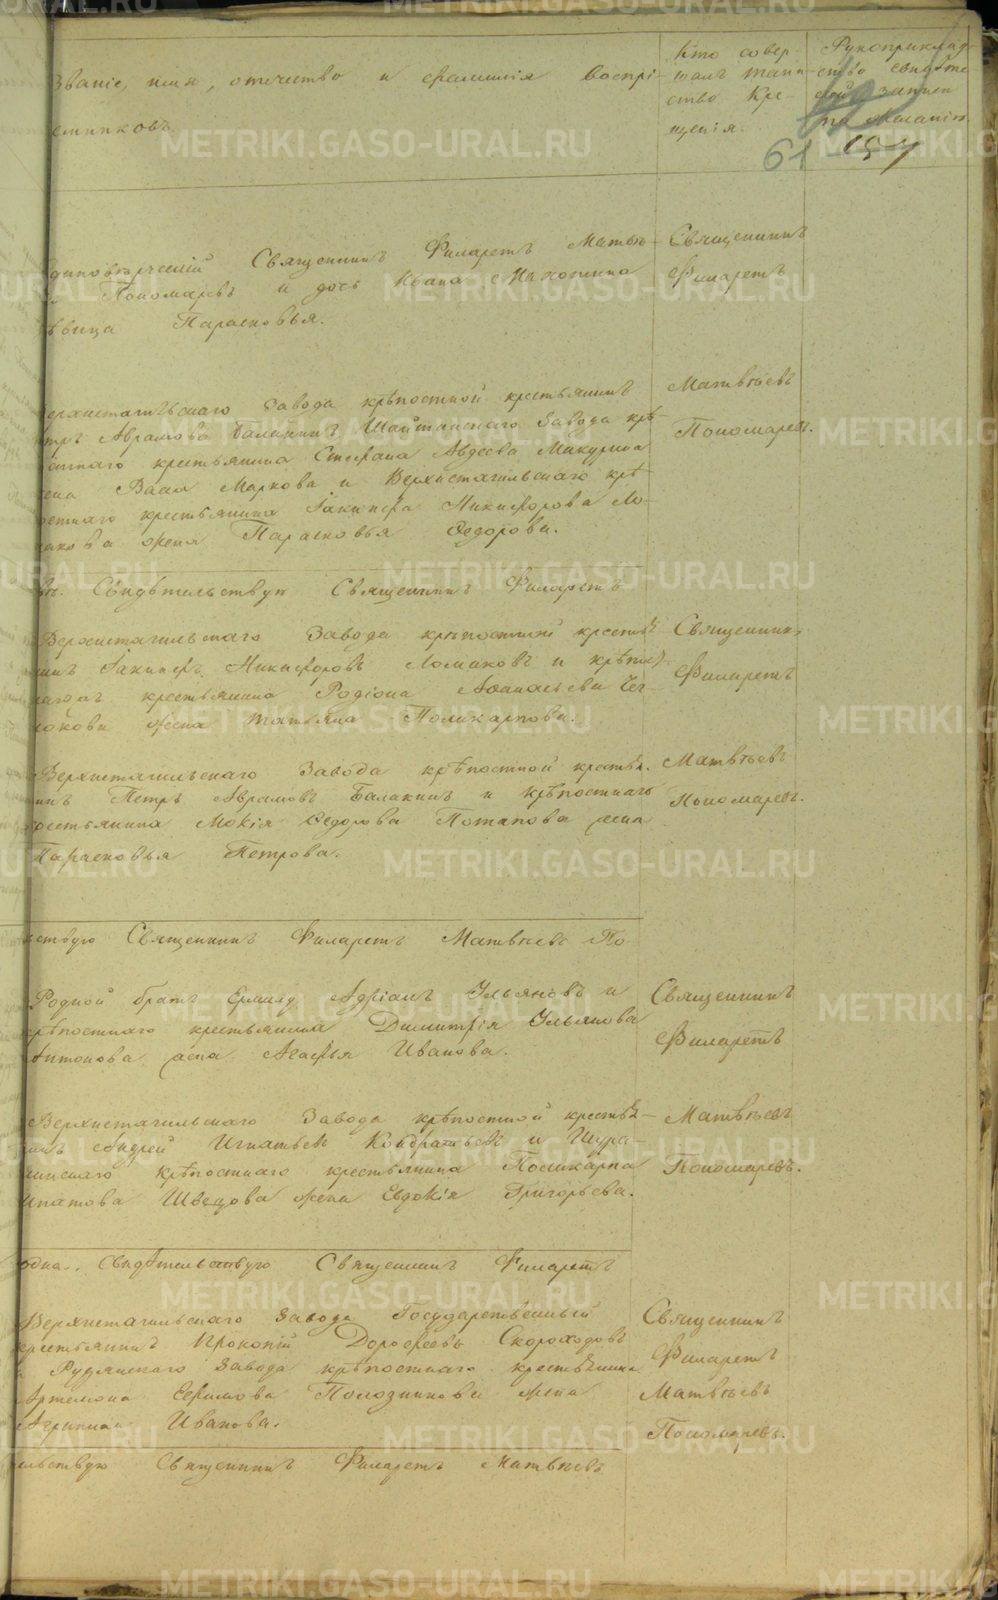 Званіе, имя, отечество и фамилія воспрі-
емниковъ.
Кто совер-
шалъ таин-
ство Кре-
щенія.
Рукоприклад-
ство свидѣте
лей записи
по желанію
61 157
диновѣрческій Священникъ Филаретъ Матвѣ-
Пономаревъ и дочь Ивана Махотина
ѣвица Парасковья.
Священникъ
Филаретъ
ерхнетагильскаго Завода крѣпостной крестьянинъ
етръ Аврамовъ Балакинъ Шайтанскаго Завода крѣ-
остнаго крестьянина Стефана Авдеева Микурина
жена Васса Маркова и Верхнетагильскаго крѣ
остнаго крестьянина Іакинфа Никифорова Ло-
макова жена Парасковья Федорова.
Матвѣевъ
Пономаревъ.
въ. Свидѣтельствую Священникъ Филаретъ
Верхнетагильскаго Завода крѣпостной крестьян
нинъ Іакинфъ Никифоровъ Ломаковъ и крѣпос
наго крестьянина Родіона Афанасьева Чег-
локова жена Татьяна Поликарпова.
Священникъ
Филаретъ
Верхнетагильскаго Завода крѣпостной крестья.
нинъ Петръ Аврамовъ Балакинъ и крѣпостнаго
крестьянина Мокія Федорова Потапова жена
Парасковья Петрова.
Матвѣевъ
Пономаревъ.
ьствую Священникъ Филаретъ Матвѣевъ По-
Родной братъ Ермилу Адріанъ Ульяновъ и
крѣпостнаго крестьянина Димитрія Ульянова
Антонова жена Агафья Иванова.
Священникъ
Филаретъ
Верхнетагильскаго Завода крѣпостной крестья-
нинъ Андрей Игнатьевъ Кондратьевъ и Шура-
линскаго крѣпостнаго крестьянина Поликарпа
Ипатова Шведова жена Евдокія Григорьева.
Матвѣевъ
Пономаревъ.
одна.. Свидѣтельствую Священникъ Филаретъ
Верхнетагильскаго Завода Государственный
крестьянинъ Прокопій Дорофеевъ Скороходовъ
и Рудянскаго Завода крѣпостнаго крестьянина
Артемона Ефимова Полозникова жена
Агрипина Иванова.
Священникъ
Филаретъ
Матвѣевъ
Пономаревъ.
ельствую Священникъ Филаретъ Матвѣевъ
METRIKI.GASO-URAL.RU